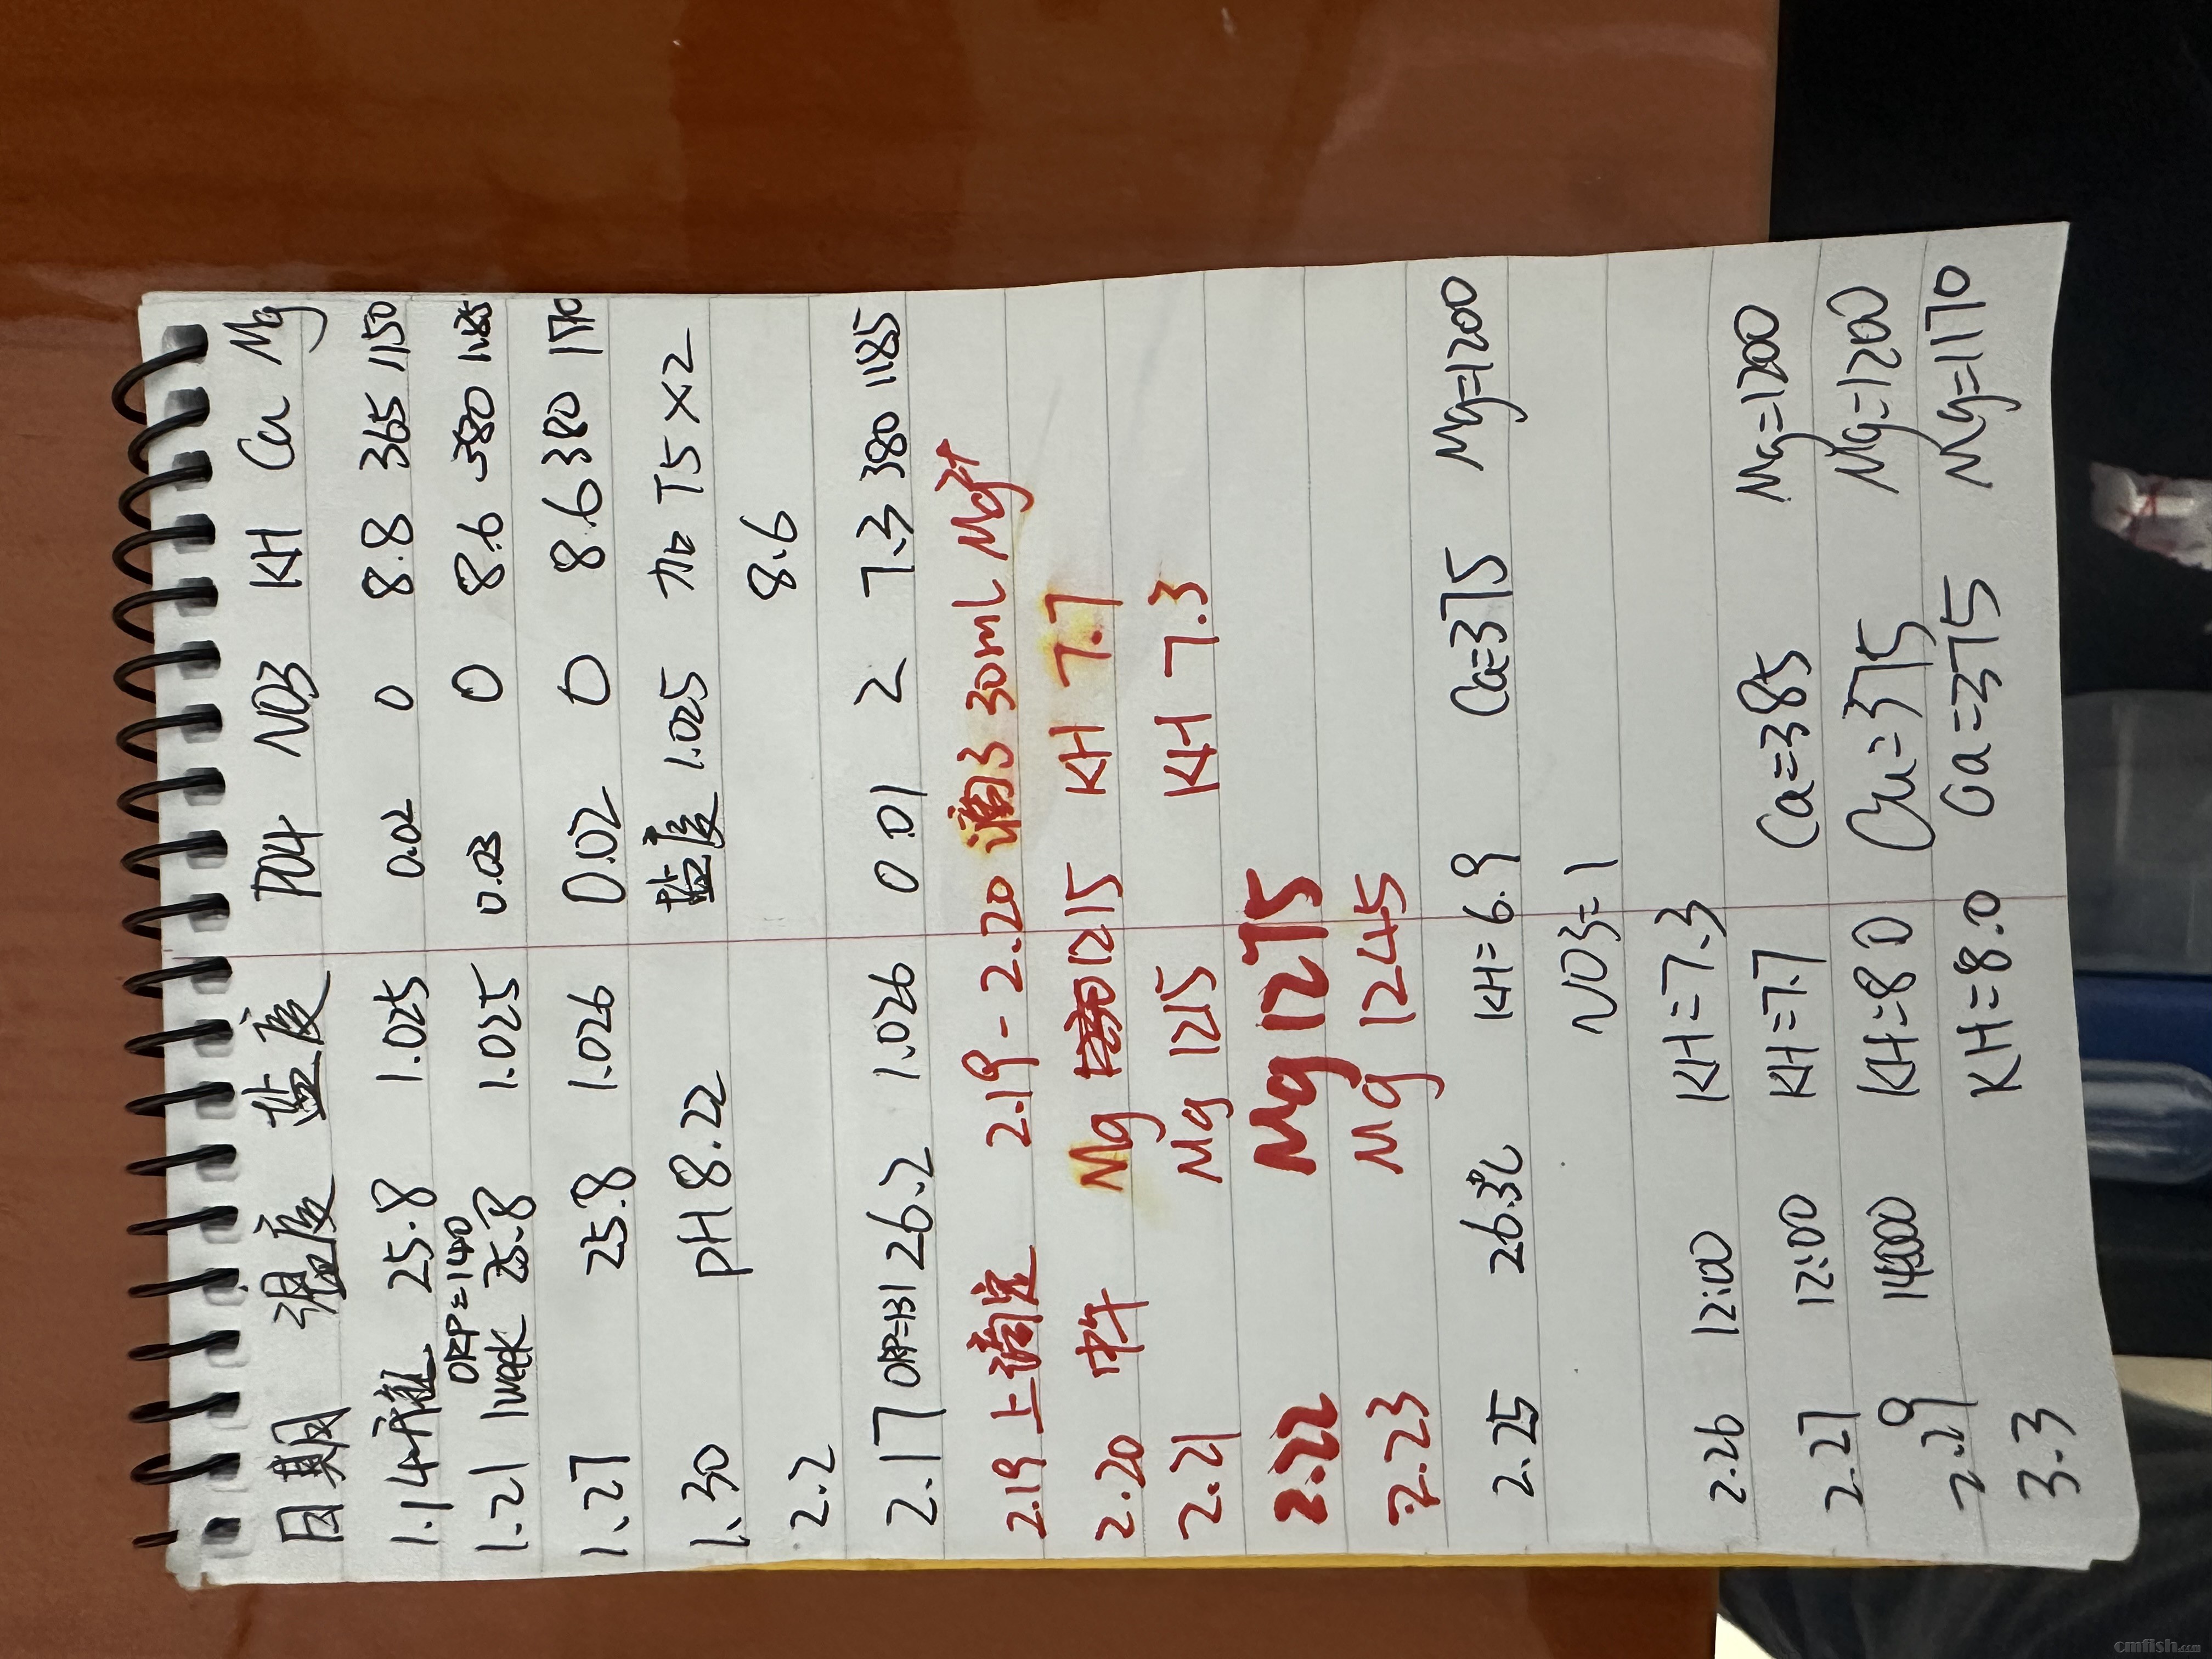 日期 温度 盐度 PO4 NO3 KH Ca Mg
1.14开缸 25.8 1.025 0.02 0 8.8 365 1150
ORP=140
1.21 1week 25.8 1.025 0.03 0 8.6 380 1185
1.27 25.8 1.026 0.02 0 8.6 380 1170
1.30 pH 8.22 盐度 1.025 加 T5×2
2.2 8.6
2.17 ORP=131 26.2 1.026 0.01 2 7.3 380 1185
2.19 上滴定 2.19-2.20 滴3 30mL Mg2+
2.20 中午 Mg 1215 KH 7.7
2.21 Mg 1215 KH 7.3
2.22 Mg 1275
2.23 Mg 1245
2.25 26.3℃ KH=6.9 Ca=375 Mg=1200
NO3=1
2.26 12:00 KH=7.3
2.27 12:00 KH=7.7 Ca=385 Mg=1200
2.29 KH=8.0 Ca=375 Mg=1200
3.3 KH=8.0 Ca=375 Mg=1170
cmfish.com